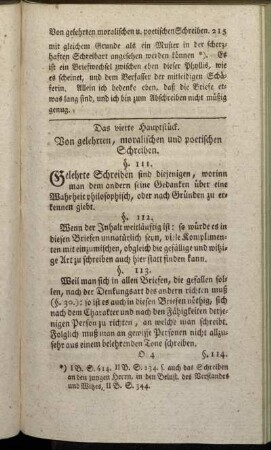 Von gelehrten moralischen u. poetischen Schreiben. 215
mit gleichem Grunde als ein Muster in der scherz-
haften Schreibart angesehen werden können *). Es
ist ein Briefwechsel zwischen eben dieser Phyllis, wie
es scheinet, und dem Verfasser der mitleidigen Schä-
ferin. Allein ich bedenke eben, daß die Briefe et-
was lang sind, und ich bin zum Abschreiben nicht müßig
genug.
Das vierte Hauptstück.
Von gelehrten, moralischen und poetischen
Schreiben.
§. 111.
Gelehrte Schreiben sind diejenigen, worinn
man dem andern seine Gedanken über eine
Wahrheit philosophisch, oder nach Gründen zu er-
kennen giebt.
§. 112.
Wenn der Inhalt weitläuftig ist: so würde es in
diesen Briefen unnatürlich seyn, viele Komplimen-
ten mit einzumischen, obgleich die gefällige und witzi-
ge Art zu schreiben auch hier statt finden kann.
§. 113.
Weil man sich in allen Briefen, die gefallen sol-
len, nach der Denkungsart des andern richten muß
(§. 30.): so ist es auch in diesen Briefen nöthig, sich
nach dem Charakter und nach den Fähigkeiten derje-
nigen Person zu richten, an welche man schreibt.
Folglich muß man an gewisse Personen nicht allzu-
sehr aus einem belehrenden Tone schreiben.
O 4 §. 114.
*) I B. S. 614. II B. S. 234. s. auch das Schreiben
an den jungen Herrn, in den Belust. des Verstandes
und Witzes, II B. S. 344.